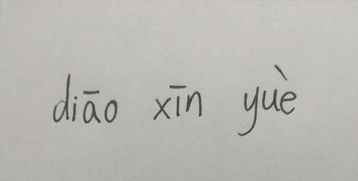 diāo xīn yuè